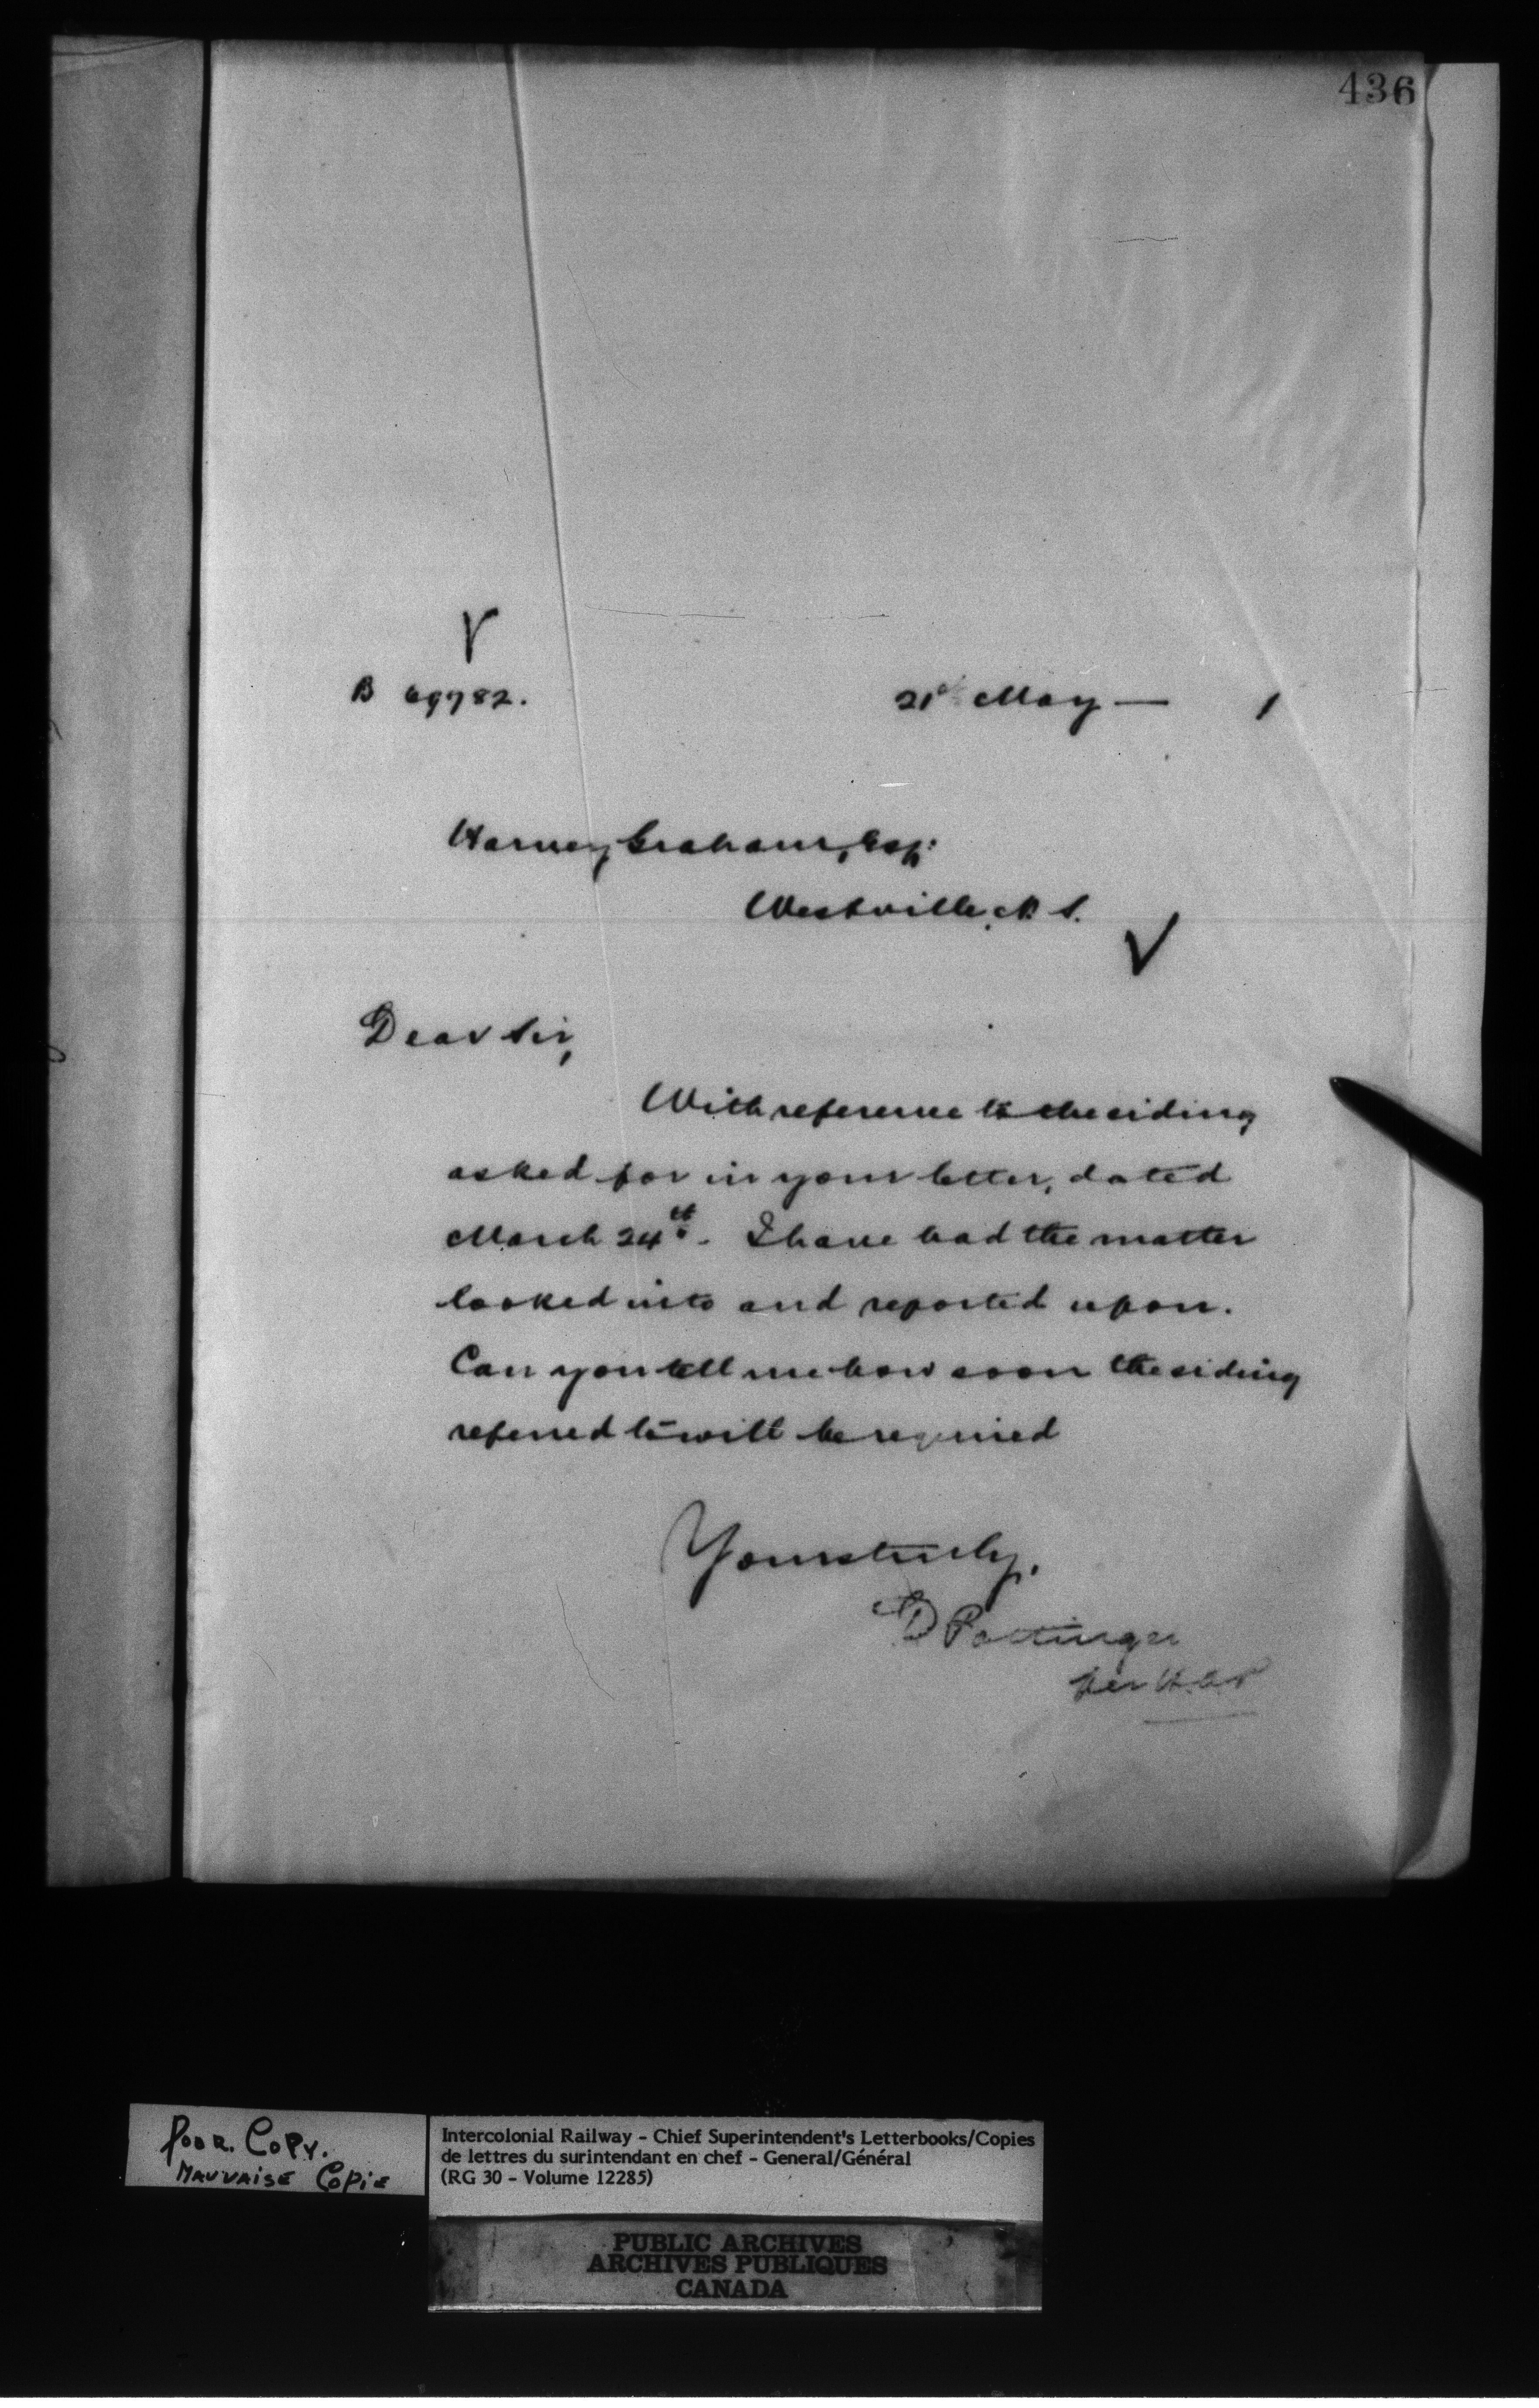 436
B 69782.
21st May — 1
Harvey Graham, Esq:
Westville, N. S.
Dear Sir,
With reference to the siding
asked for in your letter, dated
March 24th. I have had the matter
looked into and reported upon.
Can you tell me how soon the siding
referred to will be required
Yours truly,
D Pottinger
per
Poor. Copy.
Mauvaise Copie
Intercolonial Railway - Chief Superintendent's Letterbooks/Copies
de lettres du surintendant en chef - General/Général
(RG 30 - Volume 12285)
PUBLIC ARCHIVES
ARCHIVES PUBLIQUES
CANADA